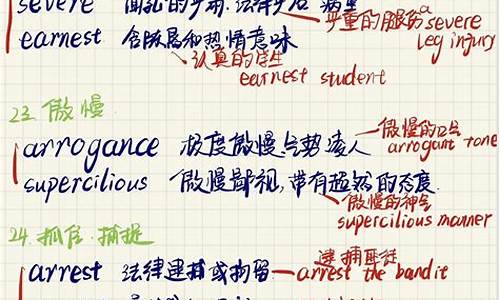 severe
严重的腿伤 a severe
leg injury
earnest 含殷局和热情意味
认真的学生
earnest student
23. 傲慢
arrogance 极度傲慢,气势凌人
傲慢的口气
arrogant tone
supercilious 傲慢鄙视,带有超然的态度.
傲慢的神气
supercilious manner
24. 抓住.捕捉
arrest 法律逮捕或拘留
逮捕匪徒
arrest the bandit